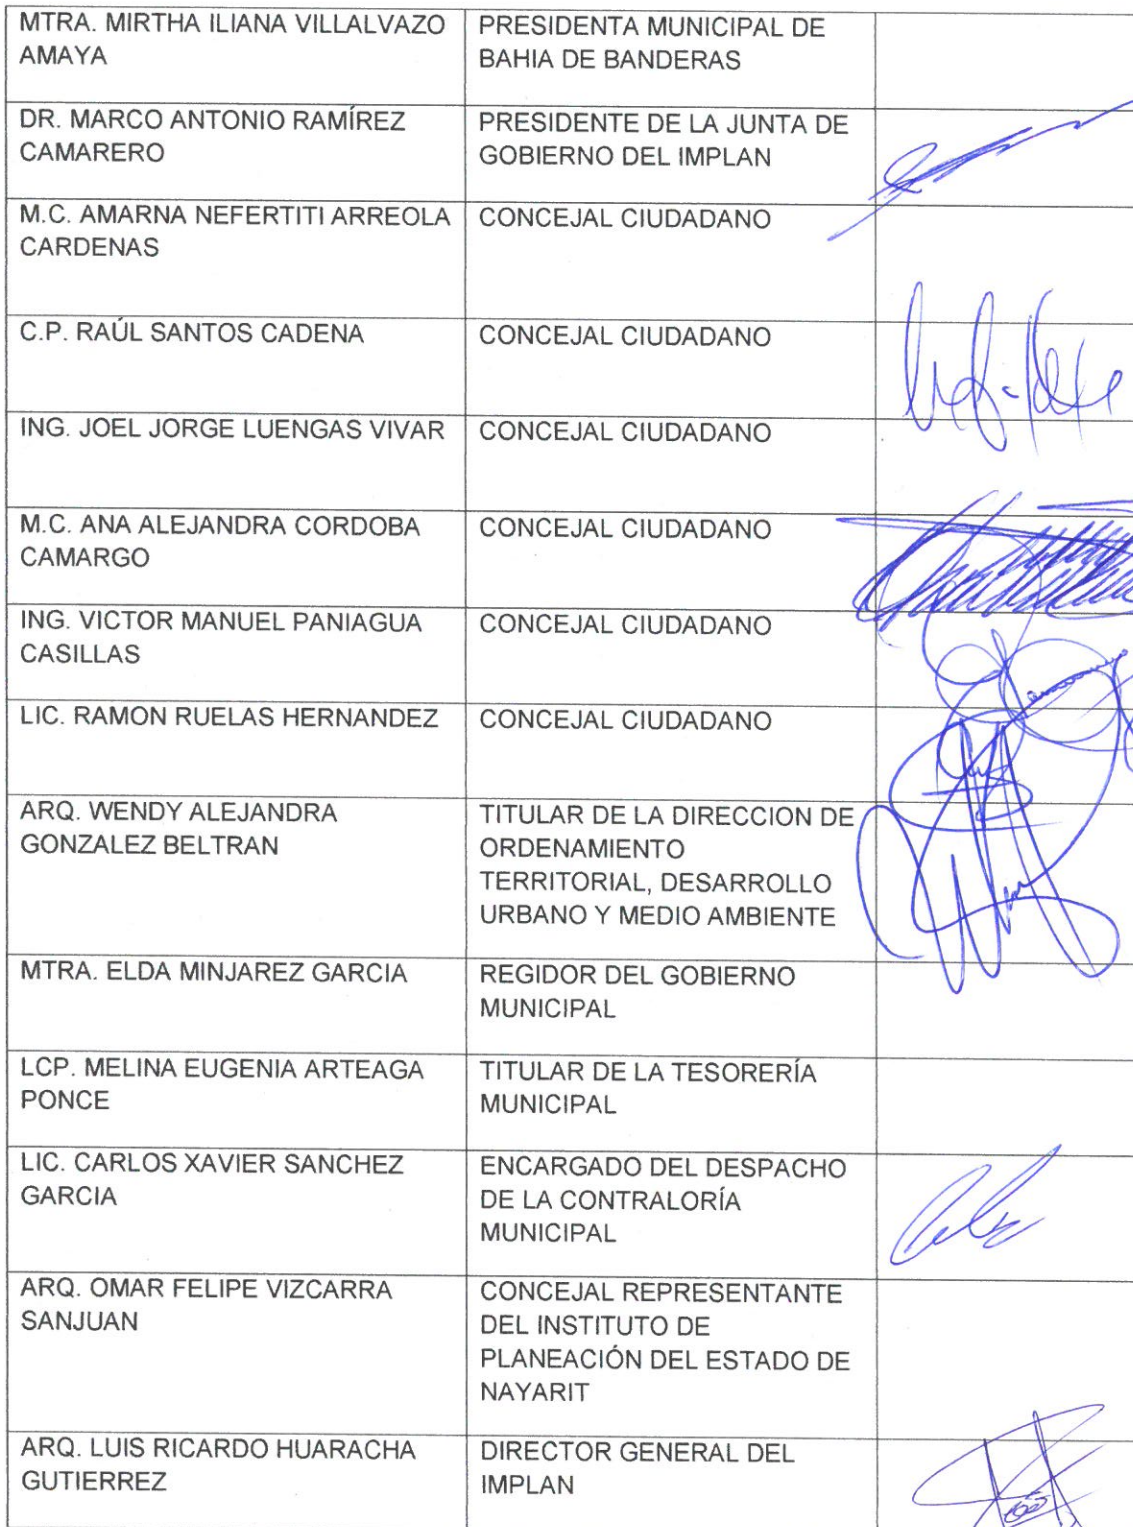 MTRA. MIRTHA ILIANA VILLALVAZO
AMAYA
PRESIDENTA MUNICIPAL DE
BAHIA DE BANDERAS
DR. MARCO ANTONIO RAMÍREZ
CAMARERO
PRESIDENTE DE LA JUNTA DE
GOBIERNO DEL IMPLAN
M.C. AMARNA NEFERTITI ARREOLA
CARDENAS
CONCEJAL CIUDADANO
C.P. RAÚL SANTOS CADENA
CONCEJAL CIUDADANO
ING. JOEL JORGE LUENGAS VIVAR
CONCEJAL CIUDADANO
M.C. ANA ALEJANDRA CORDOBA
CAMARGO
CONCEJAL CIUDADANO
ING. VICTOR MANUEL PANIAGUA
CASILLAS
CONCEJAL CIUDADANO
LIC. RAMON RUELAS HERNANDEZ
CONCEJAL CIUDADANO
ARQ. WENDY ALEJANDRA
GONZALEZ BELTRAN
TITULAR DE LA DIRECCION DE
ORDENAMIENTO
TERRITORIAL, DESARROLLO
URBANO Y MEDIO AMBIENTE
MTRA. ELDA MINJAREZ GARCIA
REGIDOR DEL GOBIERNO
MUNICIPAL
LCP. MELINA EUGENIA ARTEAGA
PONCE
TITULAR DE LA TESORERÍA
MUNICIPAL
LIC. CARLOS XAVIER SANCHEZ
GARCIA
ENCARGADO DEL DESPACHO
DE LA CONTRALORÍA
MUNICIPAL
ARQ. OMAR FELIPE VIZCARRA
SANJUAN
CONCEJAL REPRESENTANTE
DEL INSTITUTO DE
PLANEACIÓN DEL ESTADO DE
NAYARIT
ARQ. LUIS RICARDO HUARACHA
GUTIERREZ
DIRECTOR GENERAL DEL
IMPLAN